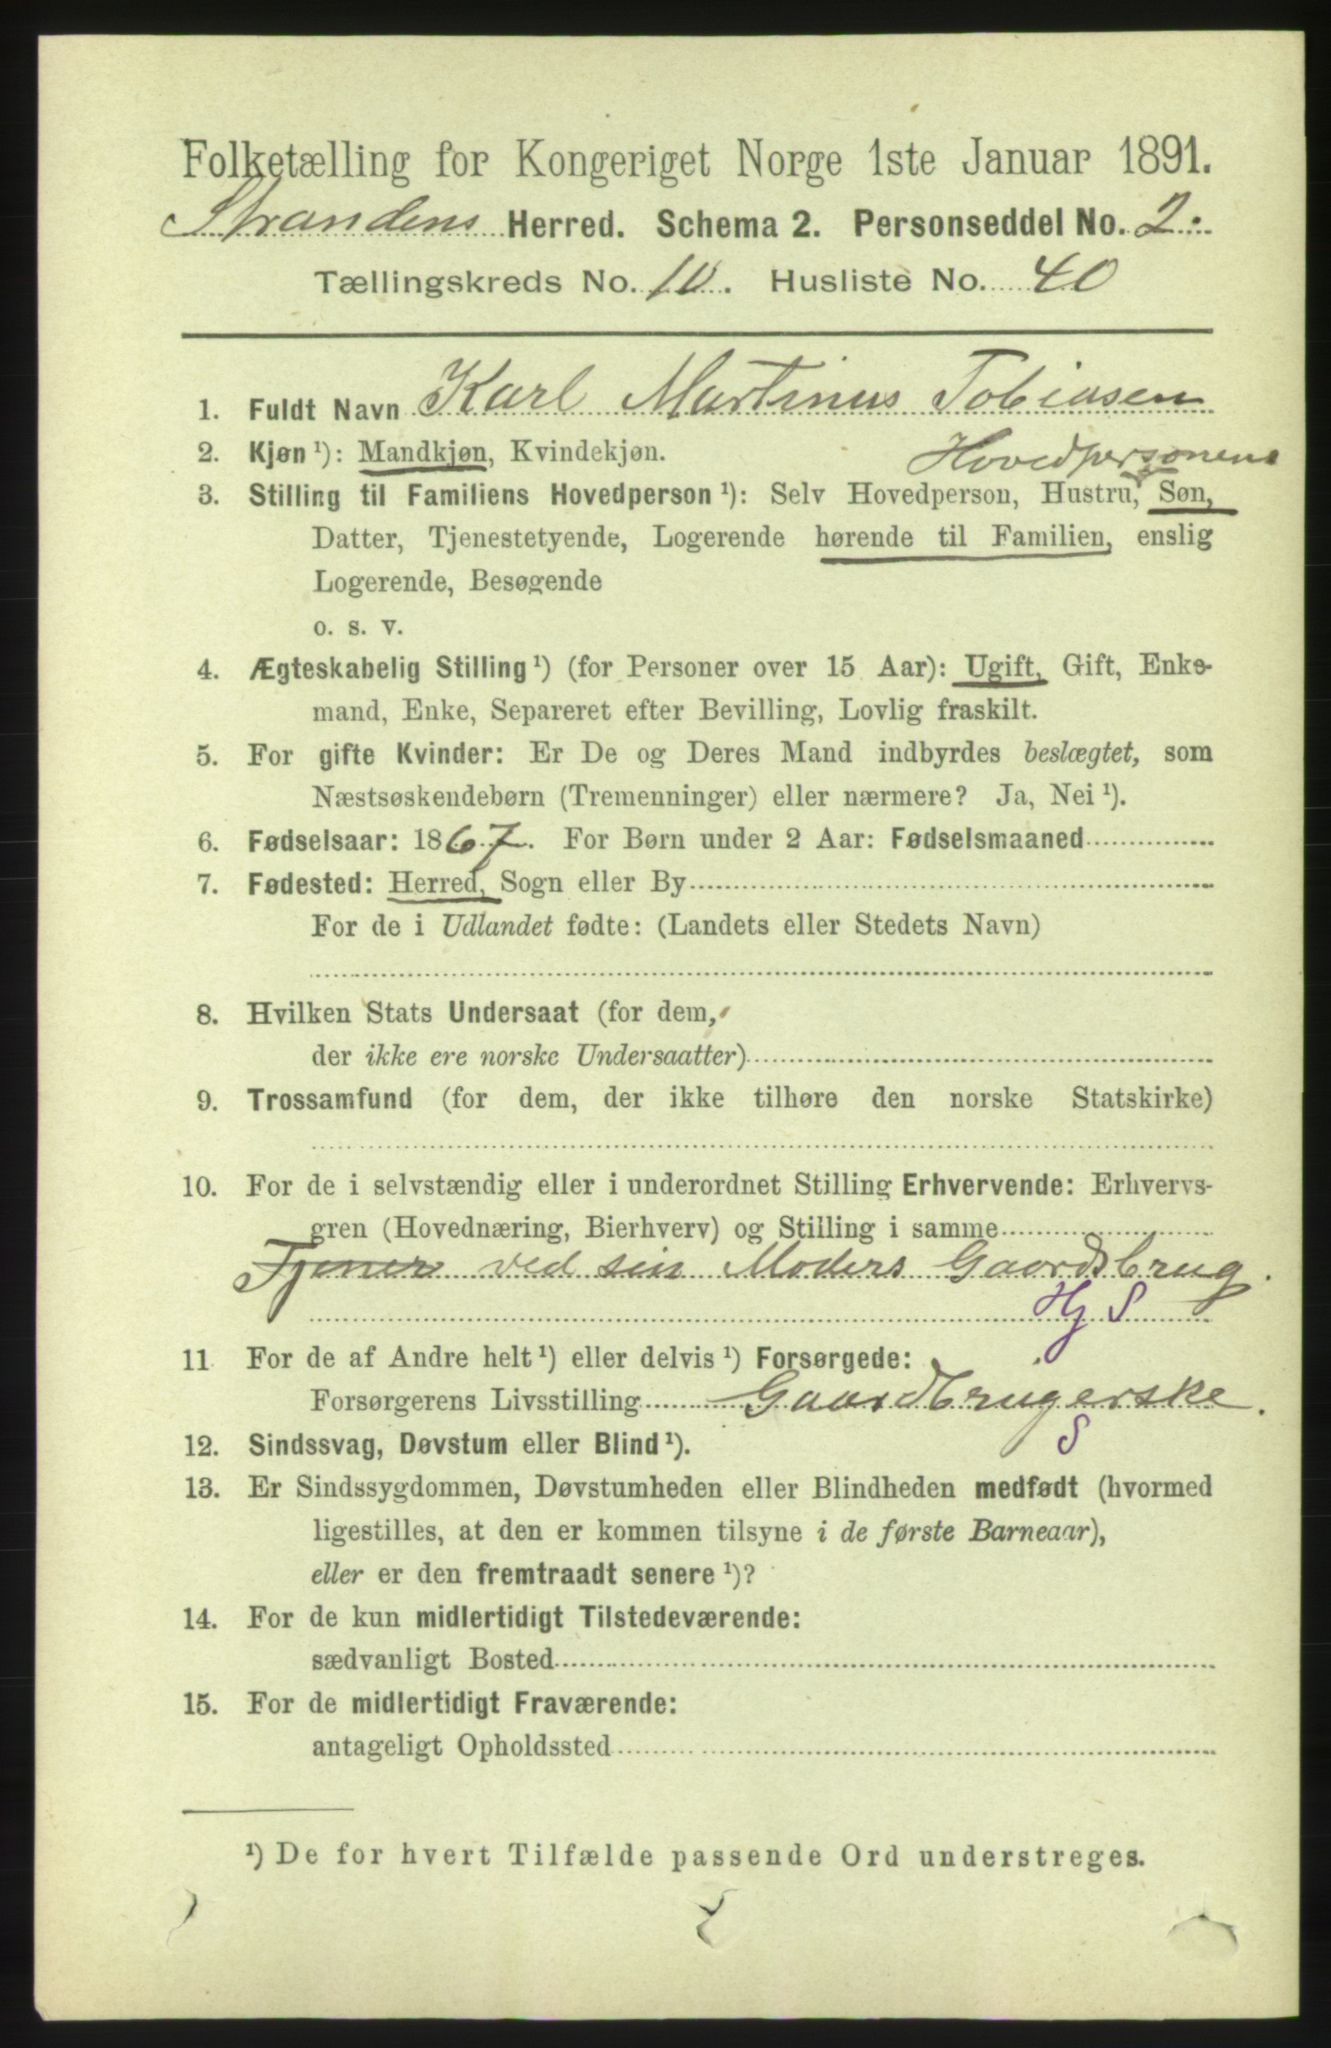 Folketælling for Kongeriget Norge 1ste Januar 1891.
Strandens Herred. Schema 2. Personseddel No. 2.
Tællingskreds No. 10. Husliste No. 40
1. Fuldt Navn Karl Martinus Tobiasen
2. Kjøn ¹): Mandkjøn, Kvindekjøn.
Hovedpersonens
3. Stilling til Familiens Hovedperson ¹): Selv Hovedperson, Hustru, Søn,
Datter, Tjenestetyende, Logerende hørende til Familien, enslig
Logerende, Besøgende
o. s. v.
4. Ægteskabelig Stilling ¹) (for Personer over 15 Aar): Ugift, Gift, Enke-
mand, Enke, Separeret efter Bevilling, Lovlig fraskilt.
5. For gifte Kvinder: Er De og Deres Mand indbyrdes beslægtet, som
Næstsøskendebørn (Tremenninger) eller nærmere? Ja, Nei ¹).
6. Fødselsaar: 1867. For Børn under 2 Aar: Fødselsmaaned
7. Fødested: Herred, Sogn eller By
For de i Udlandet fødte: (Landets eller Stedets Navn)
8. Hvilken Stats Undersaat (for dem,
der ikke ere norske Undersaatter)
9. Trossamfund (for dem, der ikke tilhøre den norske Statskirke)
10. For de i selvstændig eller i underordnet Stilling Erhvervende: Erhvervs-
gren (Hovednæring, Bierhverv) og Stilling i samme
Tjener ved sin Moders Gaardsbrug.
Hj S
11 For de af Andre helt ¹) eller delvis ¹) Forsørgede:
Forsørgerens Livsstilling Gaardbrugerske.
S
12. Sindssvag, Døvstum eller Blind ¹).
13. Er Sindssygdommen, Døvstumheden eller Blindheden medfødt (hvormed
ligestilles, at den er kommen tilsyne i de første Barneaar),
eller er den fremtraadt senere ¹)?
14. For de kun midlertidigt Tilstedeværende:
sædvanligt Bosted
15. For de midlertidigt Fraværende:
antageligt Opholdssted
¹) De for hvert Tilfælde passende Ord understreges.